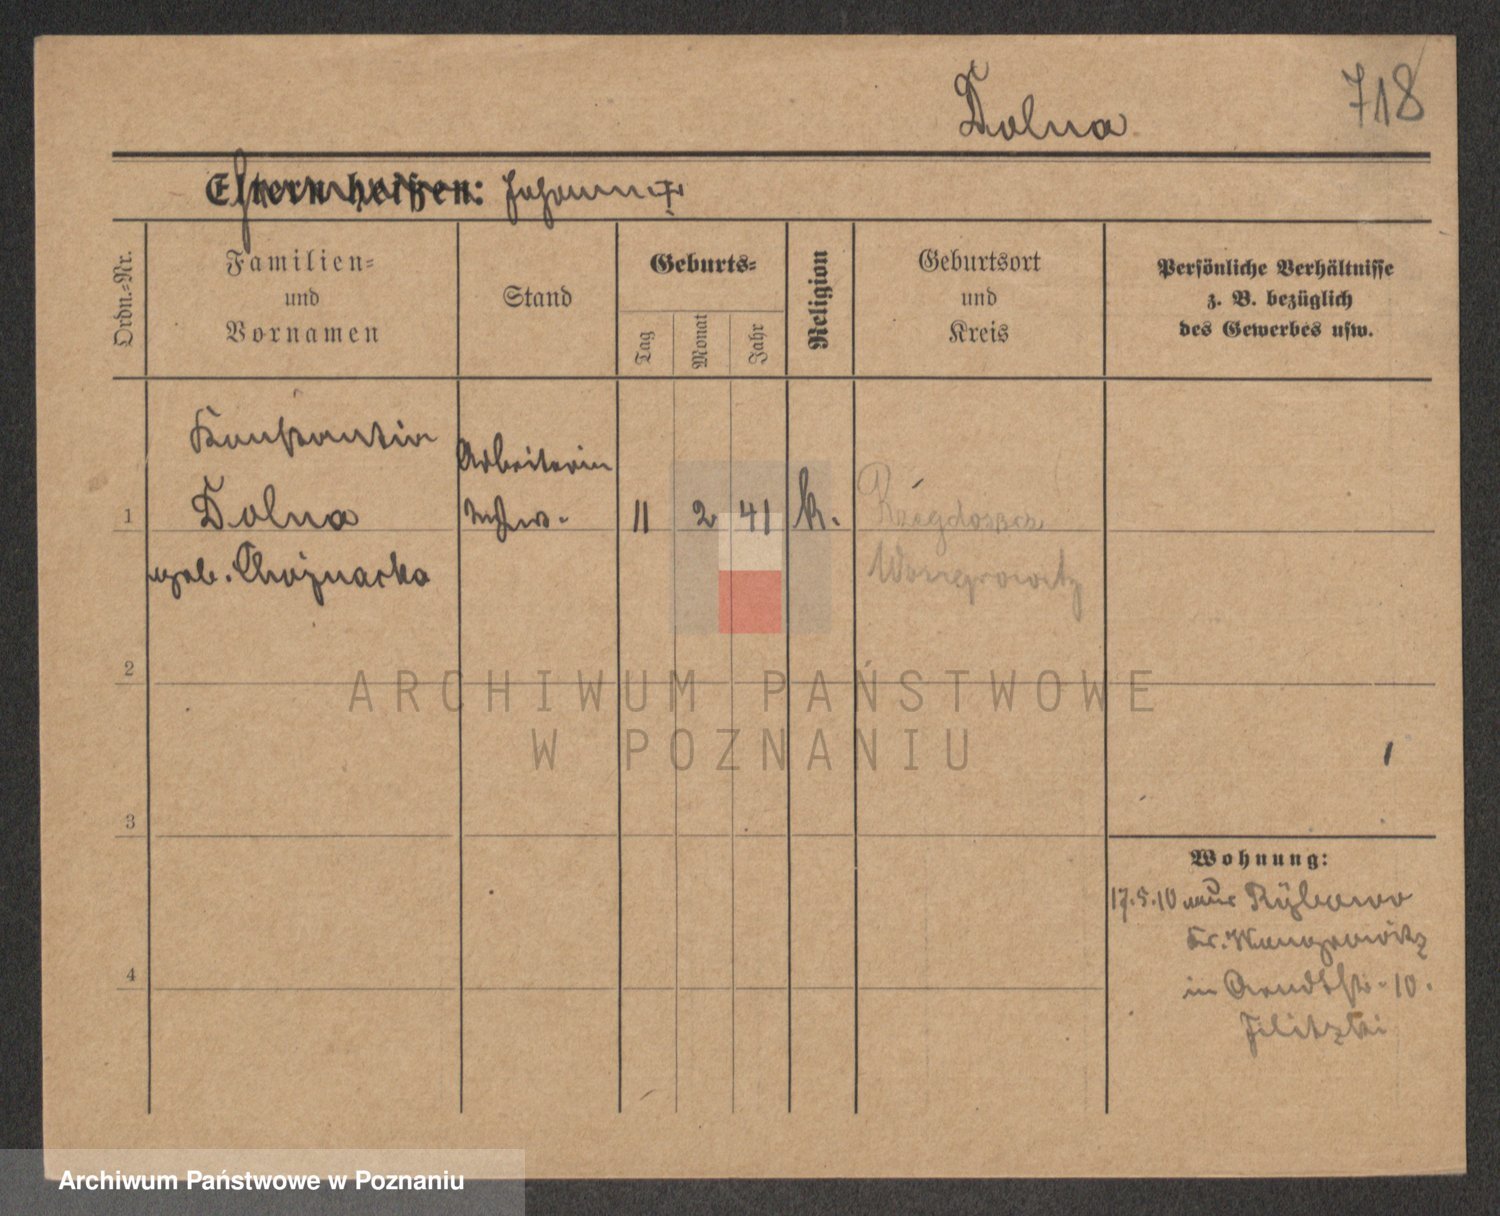 Dolna
718
Eltern heißen: Johann †
Ordn.-Nr.
Familien-
und
Vornamen
Stand
Geburts-
Tag
Monat
Jahr
Religion
Geburtsort
und
Kreis
Persönliche Verhältnisse
z. B. bezüglich
des Gewerbes usw.
Konstantia
Arbeiterin
1
Dolna
11
2
41
k.
geb. Choynacka
Wongrowitz
2
ARCHIWUM PAŃSTWOWE
W POZNANIU
3
Wohnung:
17.5.10 aus Rybowo
Kr. Wongrowitz
4
in Arndtstr. 10.
Archiwum Państwowe w Poznaniu